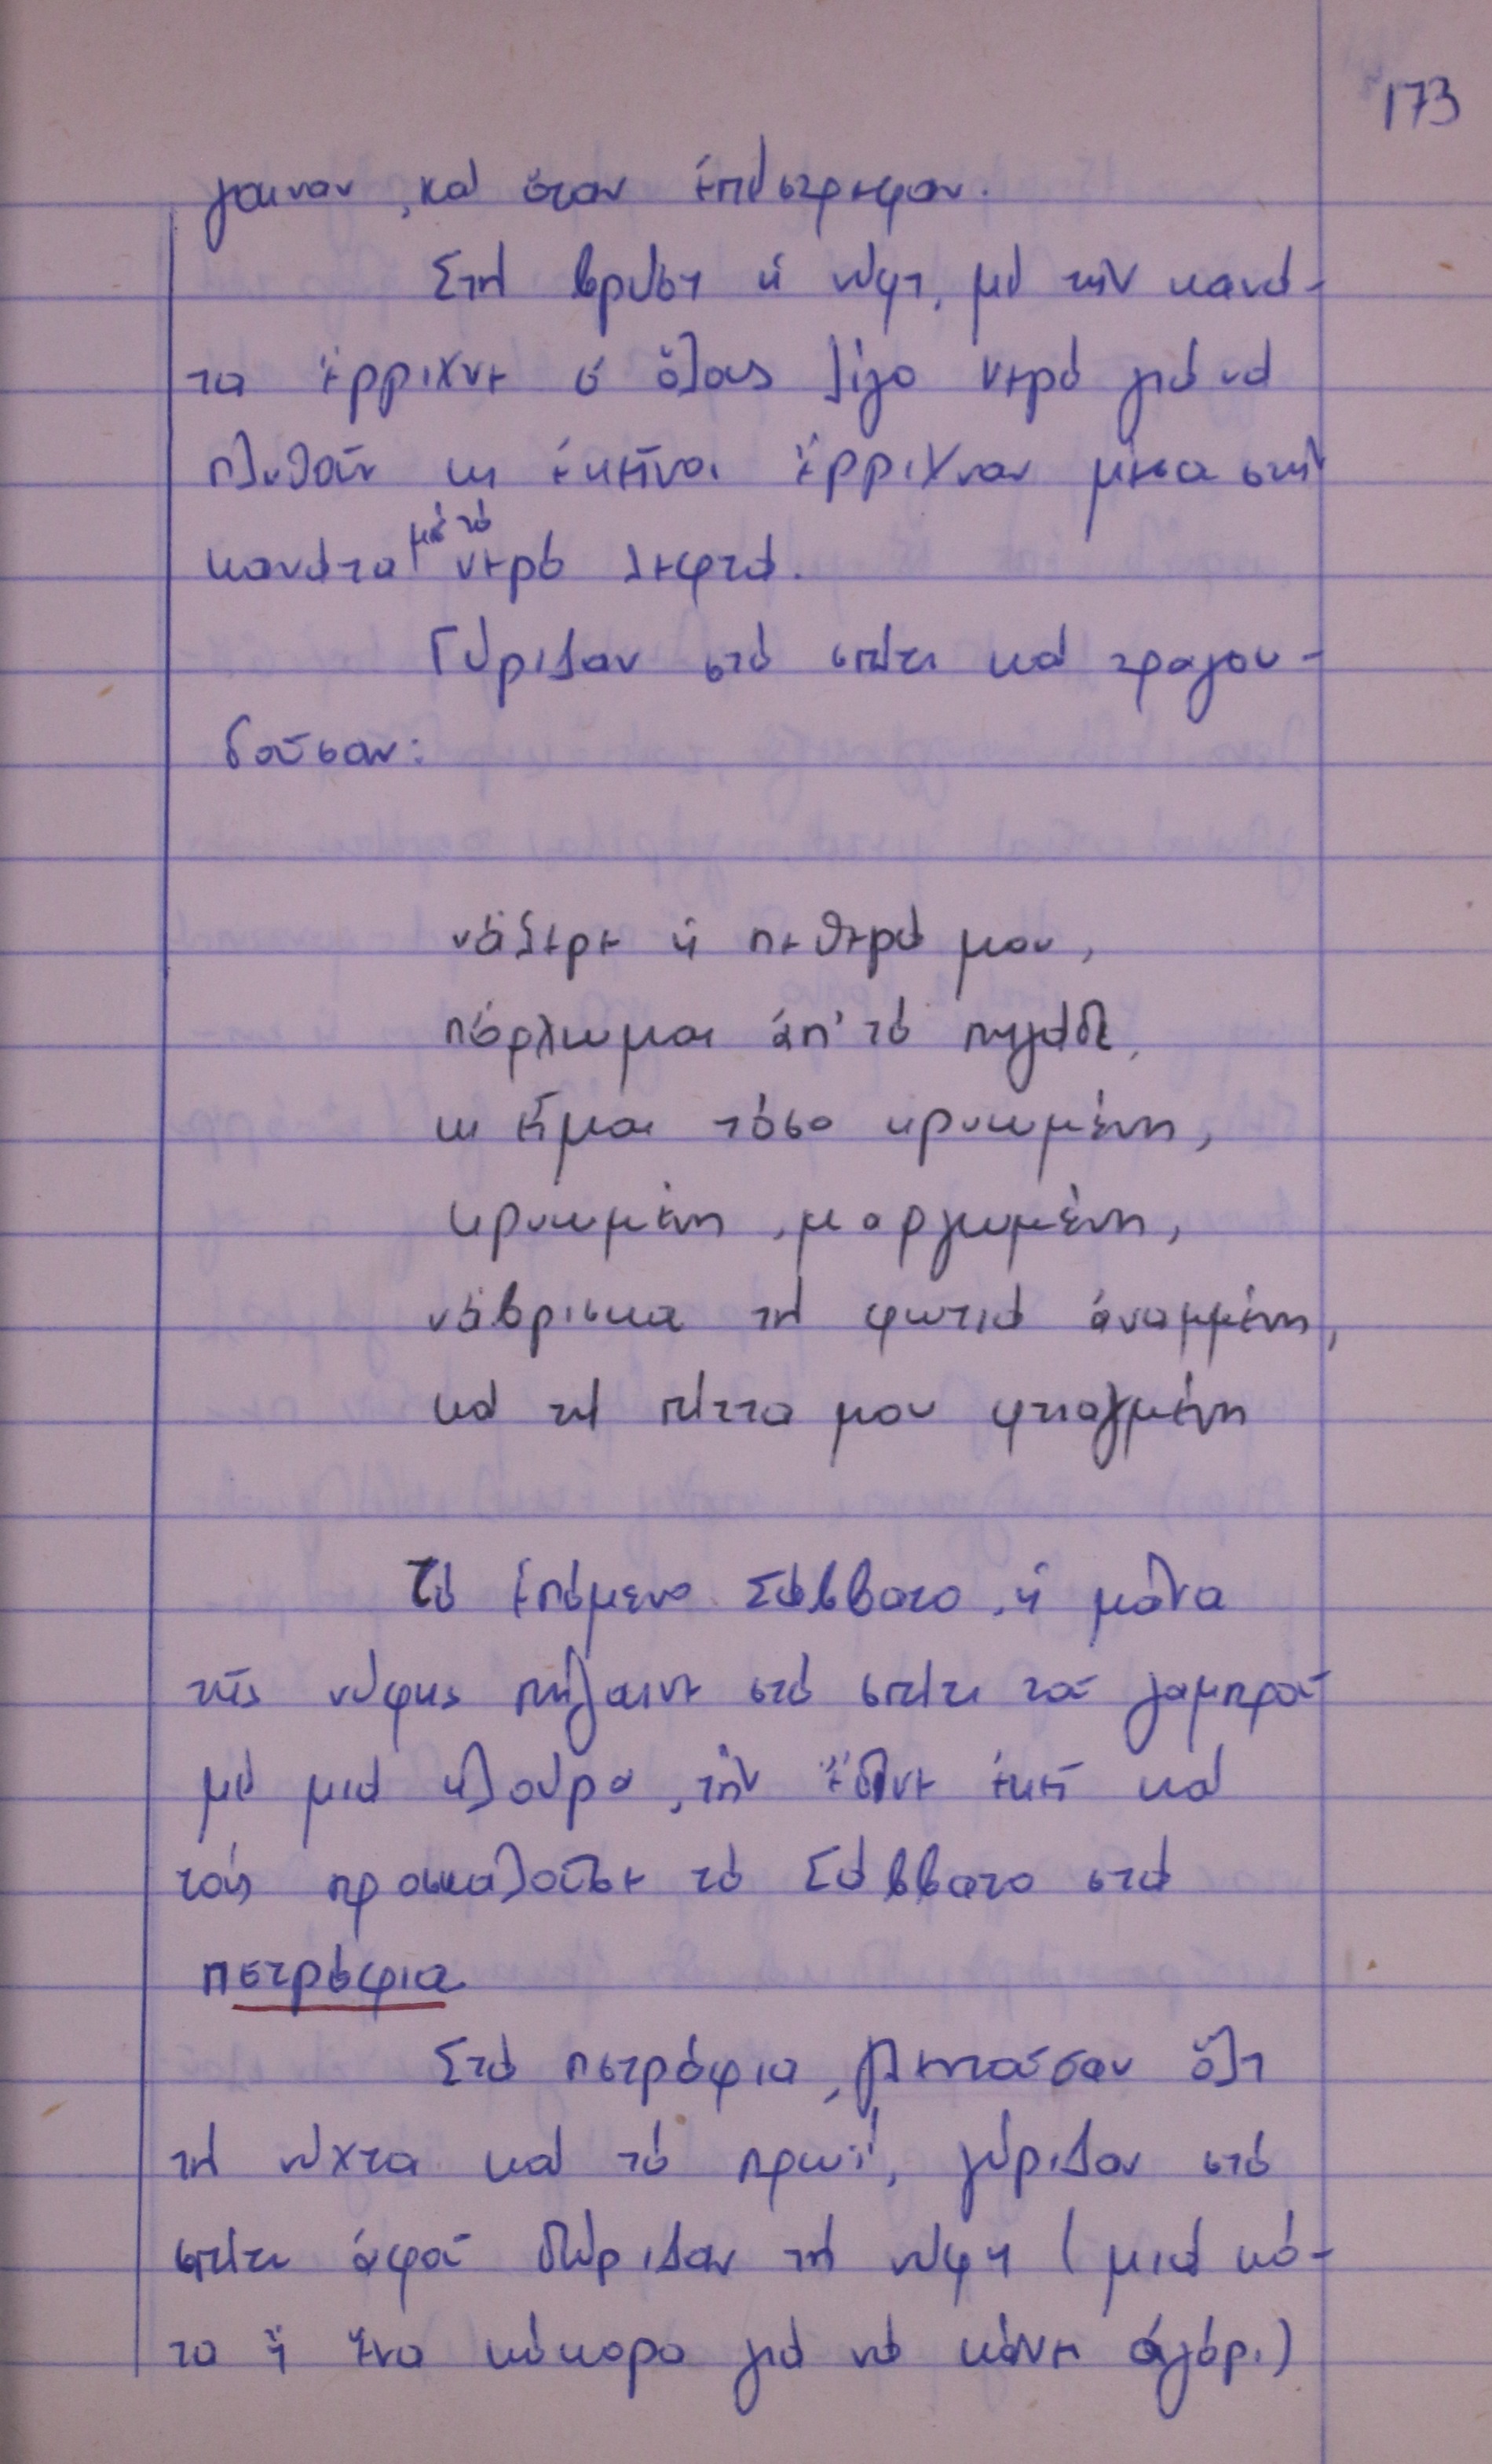 173
γαιναν, καί ὅταν ἐπέστρεφαν.
Στή βρύση ἡ νύφη, μέ τήν κανά-
τα ἔρριχνε σ' ὅλους λίγο νερό γιά νά
πλυθοῦν κι ἐκεῖνοι ἔρριχναν μέσα στήν
κανάτα μέ τό νερό λεφτά.
Γύριζαν στό σπίτι καί τραγου-
δοῦσαν:
νἄξερε ἡ πεθερά μου,
πὄρχωμαι ἀπ' τό πηγάδι,
κι εἶμαι τόσο κρυωμένη,
κρυωμένη, μαργωμένη,
νἄβρισκα τή φωτιά ἀναμμένη,
καί τή πίττα μου φτιαγμένη
Τό ἑπόμενο Σάββατο, ἡ μάνα
τῆς νύφης πήγαινε στό σπίτι τοῦ γαμπροῦ
μέ μιά κλούρα, τήν ἔδινε ἐκεῖ καί
τούς προσκαλοῦσε τό Σάββατο στά
πστρόφια
Στά πστρόφια, γλεντοῦσαν ὅλη
τή νύχτα καί τό πρωΐ, γύριζαν στό
σπίτι ἀφοῦ δώριζαν τή νύφη (μιά κό-
τα ἤ ἕνα κόκορα γιά νά κάνει ἀγόρι)